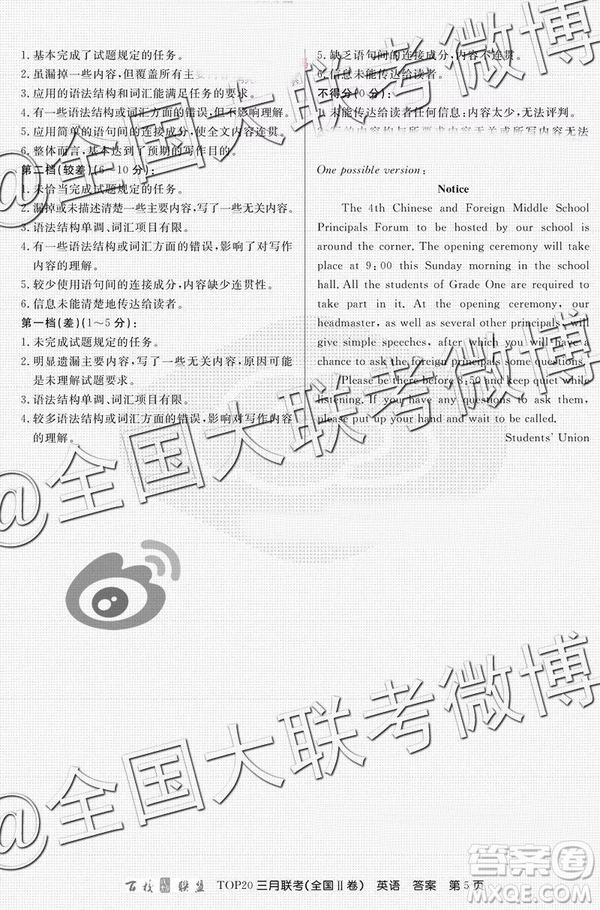 1. 基本完成了试题规定的任务。
2. 虽漏掉一些内容，但覆盖所有主要
3. 应用的语法结构和词汇能满足任务的要求。
4. 有一些语法结构或词汇方面的错误，但不影响理解。
5. 应用简单的语句间的连接成分，使全文内容连贯。
6. 整体而言，基本达到了预期的写作目的。
第二档(较差)(6～10分)：
1. 未恰当完成试题规定的任务。
2. 漏掉或未描述清楚一些主要内容，写了一些无关内容。
3. 语法结构单调、词汇项目有限。
4. 有一些语法结构或词汇方面的错误，影响了对写作内容
的理解。
5. 较少使用语句间的连接成分，内容缺少连贯性。
6. 信息未能清楚地传达给读者。
第一档(差)(1～5分)：
1. 未完成试题规定的任务。
2. 明显遗漏主要内容，写了一些无关内容，原因可能
是未理解试题要求。
3. 语法结构单调、词汇项目有限。
4. 较多语法结构或词汇方面的错误，影响对写作内容
的理解。
5. 缺乏语句间的连接成分，内容不连贯。
6. 信息未能传达给读者。
不得分(0分)：
未能传达给读者任何信息；内容太少，无法评判。
的内容均与所要求内容无关或所写内容无法
One possible version:
Notice
The 4th Chinese and Foreign Middle School
Principals Forum to be hosted by our school is
around the corner. The opening ceremony will take
place at 9:00 this Sunday morning in the school
hall. All the students of Grade One are required to
take part in it. At the opening ceremony, our
headmaster, as well as several other principals, will
give simple speeches, after which you will have a
chance to ask the foreign principals some questions.
Please be there before 8:50 and keep quiet while
listening. If you have any questions to ask them,
please put up your hand and wait to be called.
Students' Union
@全国大联考微博
@全国大联考微博
@全国大联考微博
百校联盟 TOP20 三月联考(全国Ⅱ卷) 英语 答案 第5页
作业帮